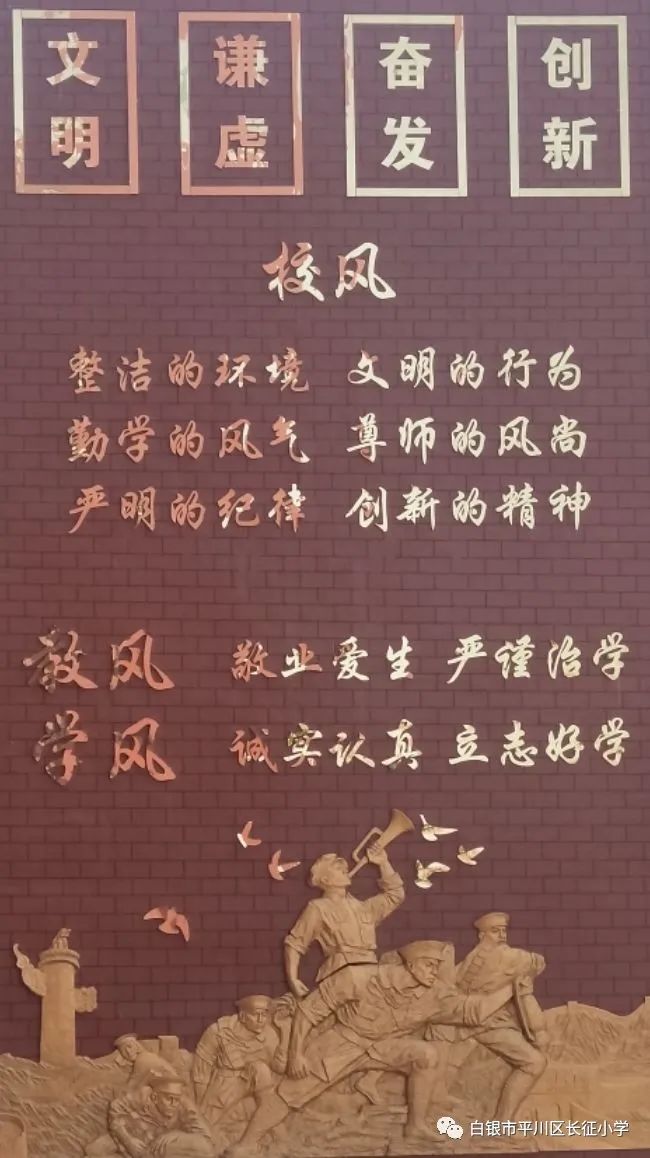 文明 谦虚 奋发 创新
校风
整洁的环境 文明的行为
勤学的风气 尊师的风尚
严明的纪律 创新的精神
教风 敬业爱生 严谨治学
学风 诚实认真 立志好学
白银市平川区长征小学